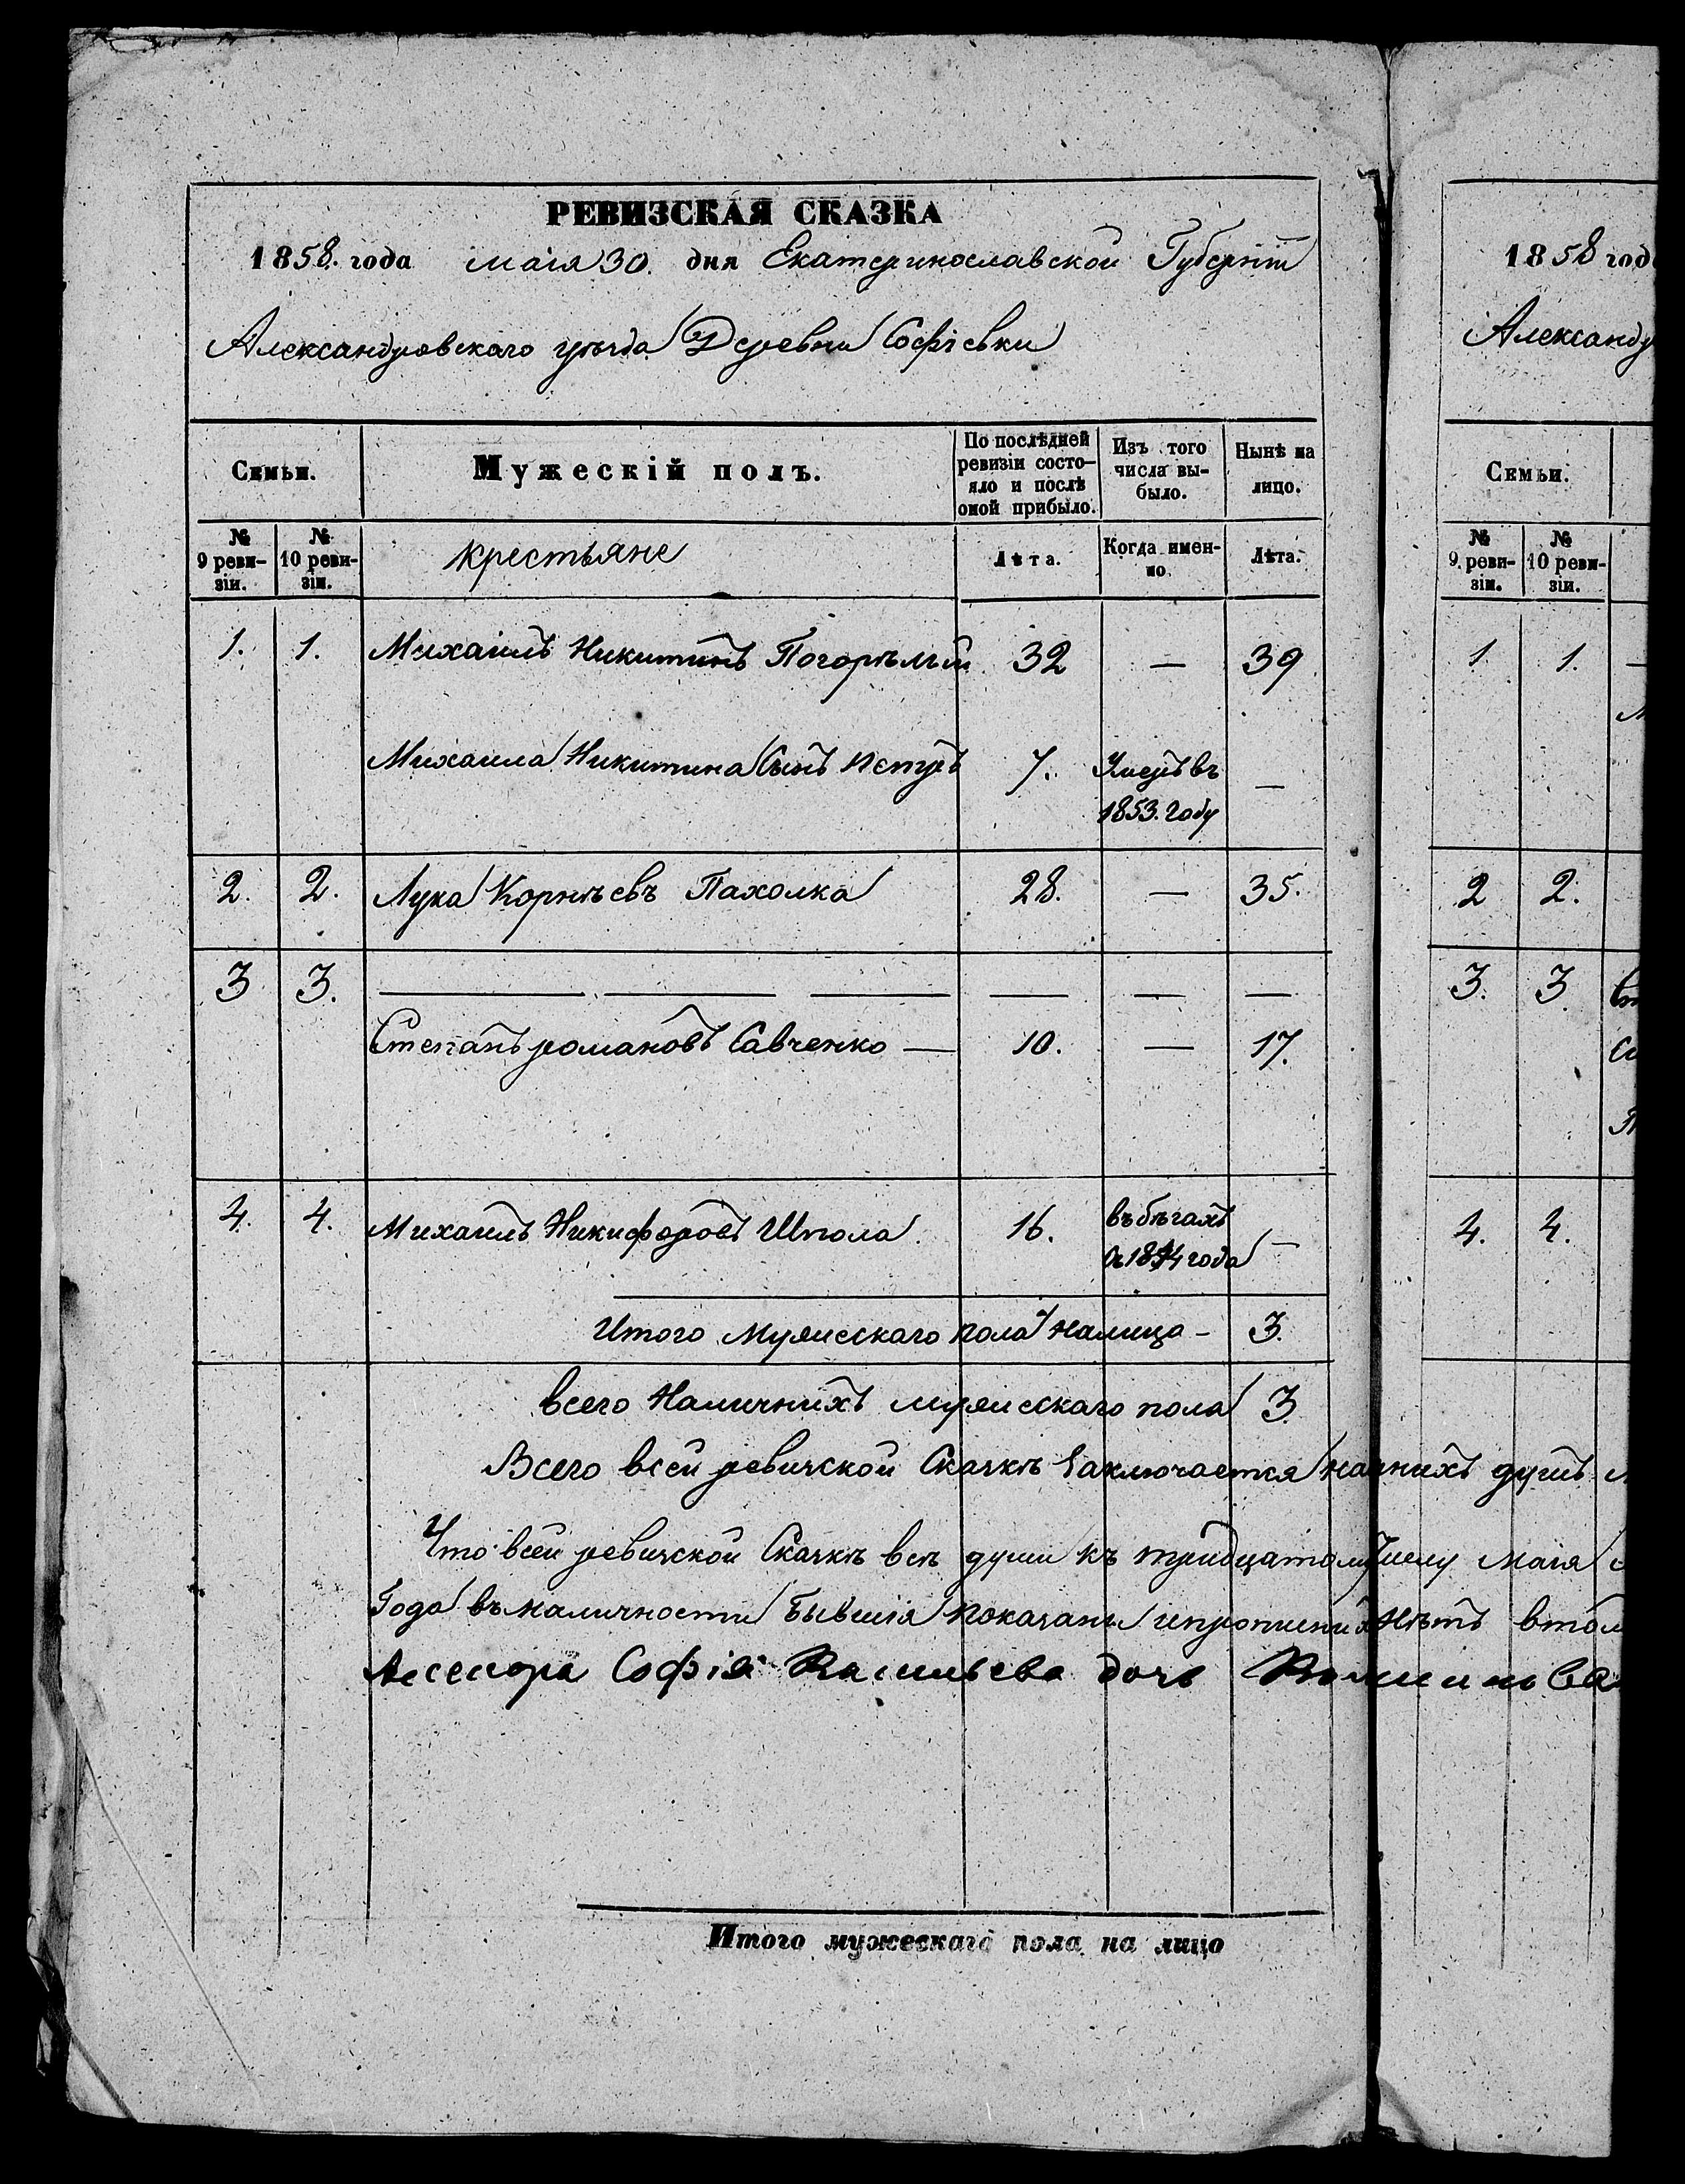 РЕВИЗСКАЯ СКАЗКА
1858. года маія 30. дня Екатеринославской Губерніи
Александровского уѣзда Деревни Софіевки
Семьи.
Мужескій полъ.
По послѣдней ревизіи состояло и послѣ оной прибыло.
Изъ того числа выбыло.
Нынѣ на лицо.
№ 9 ревизіи.
№ 10 ревизіи.
крестьяне
Лѣта.
Когда именно
Лѣта.
1. 1. Михаилъ Никитинъ Погорѣлый 32 — 39
Михаила Никитина Сынъ петръ 7. Умеръ въ —
1853. году
2. 2. Лука Корнѣевъ Пахолка 28. — 35.
3 3. — — — — — —
Степанъ романовъ Савченко — 10. — 17.
4. 4. Михаилъ Никифоровъ Шпола. 16. въ бѣгахъ —
года
Итого Мужескаго пола Налицо - 3.
всего Наличнихъ мужескаго пола 3.
Всего всей ревизской Сказкѣ Заключается душъ
Что всей ревизской Сказкѣ всѣ души къ тридцатому маія
Года въ наличности бывшія показаны Нѣтъ втом
Асесора Софія Васильева дочь
Итого мужескаго пола на лицо
1858 год
Александ
Семьи.
№ 9 ревизіи.
№ 10 ревизіи.
1. 1.
2 2.
3. 3
4. 4.